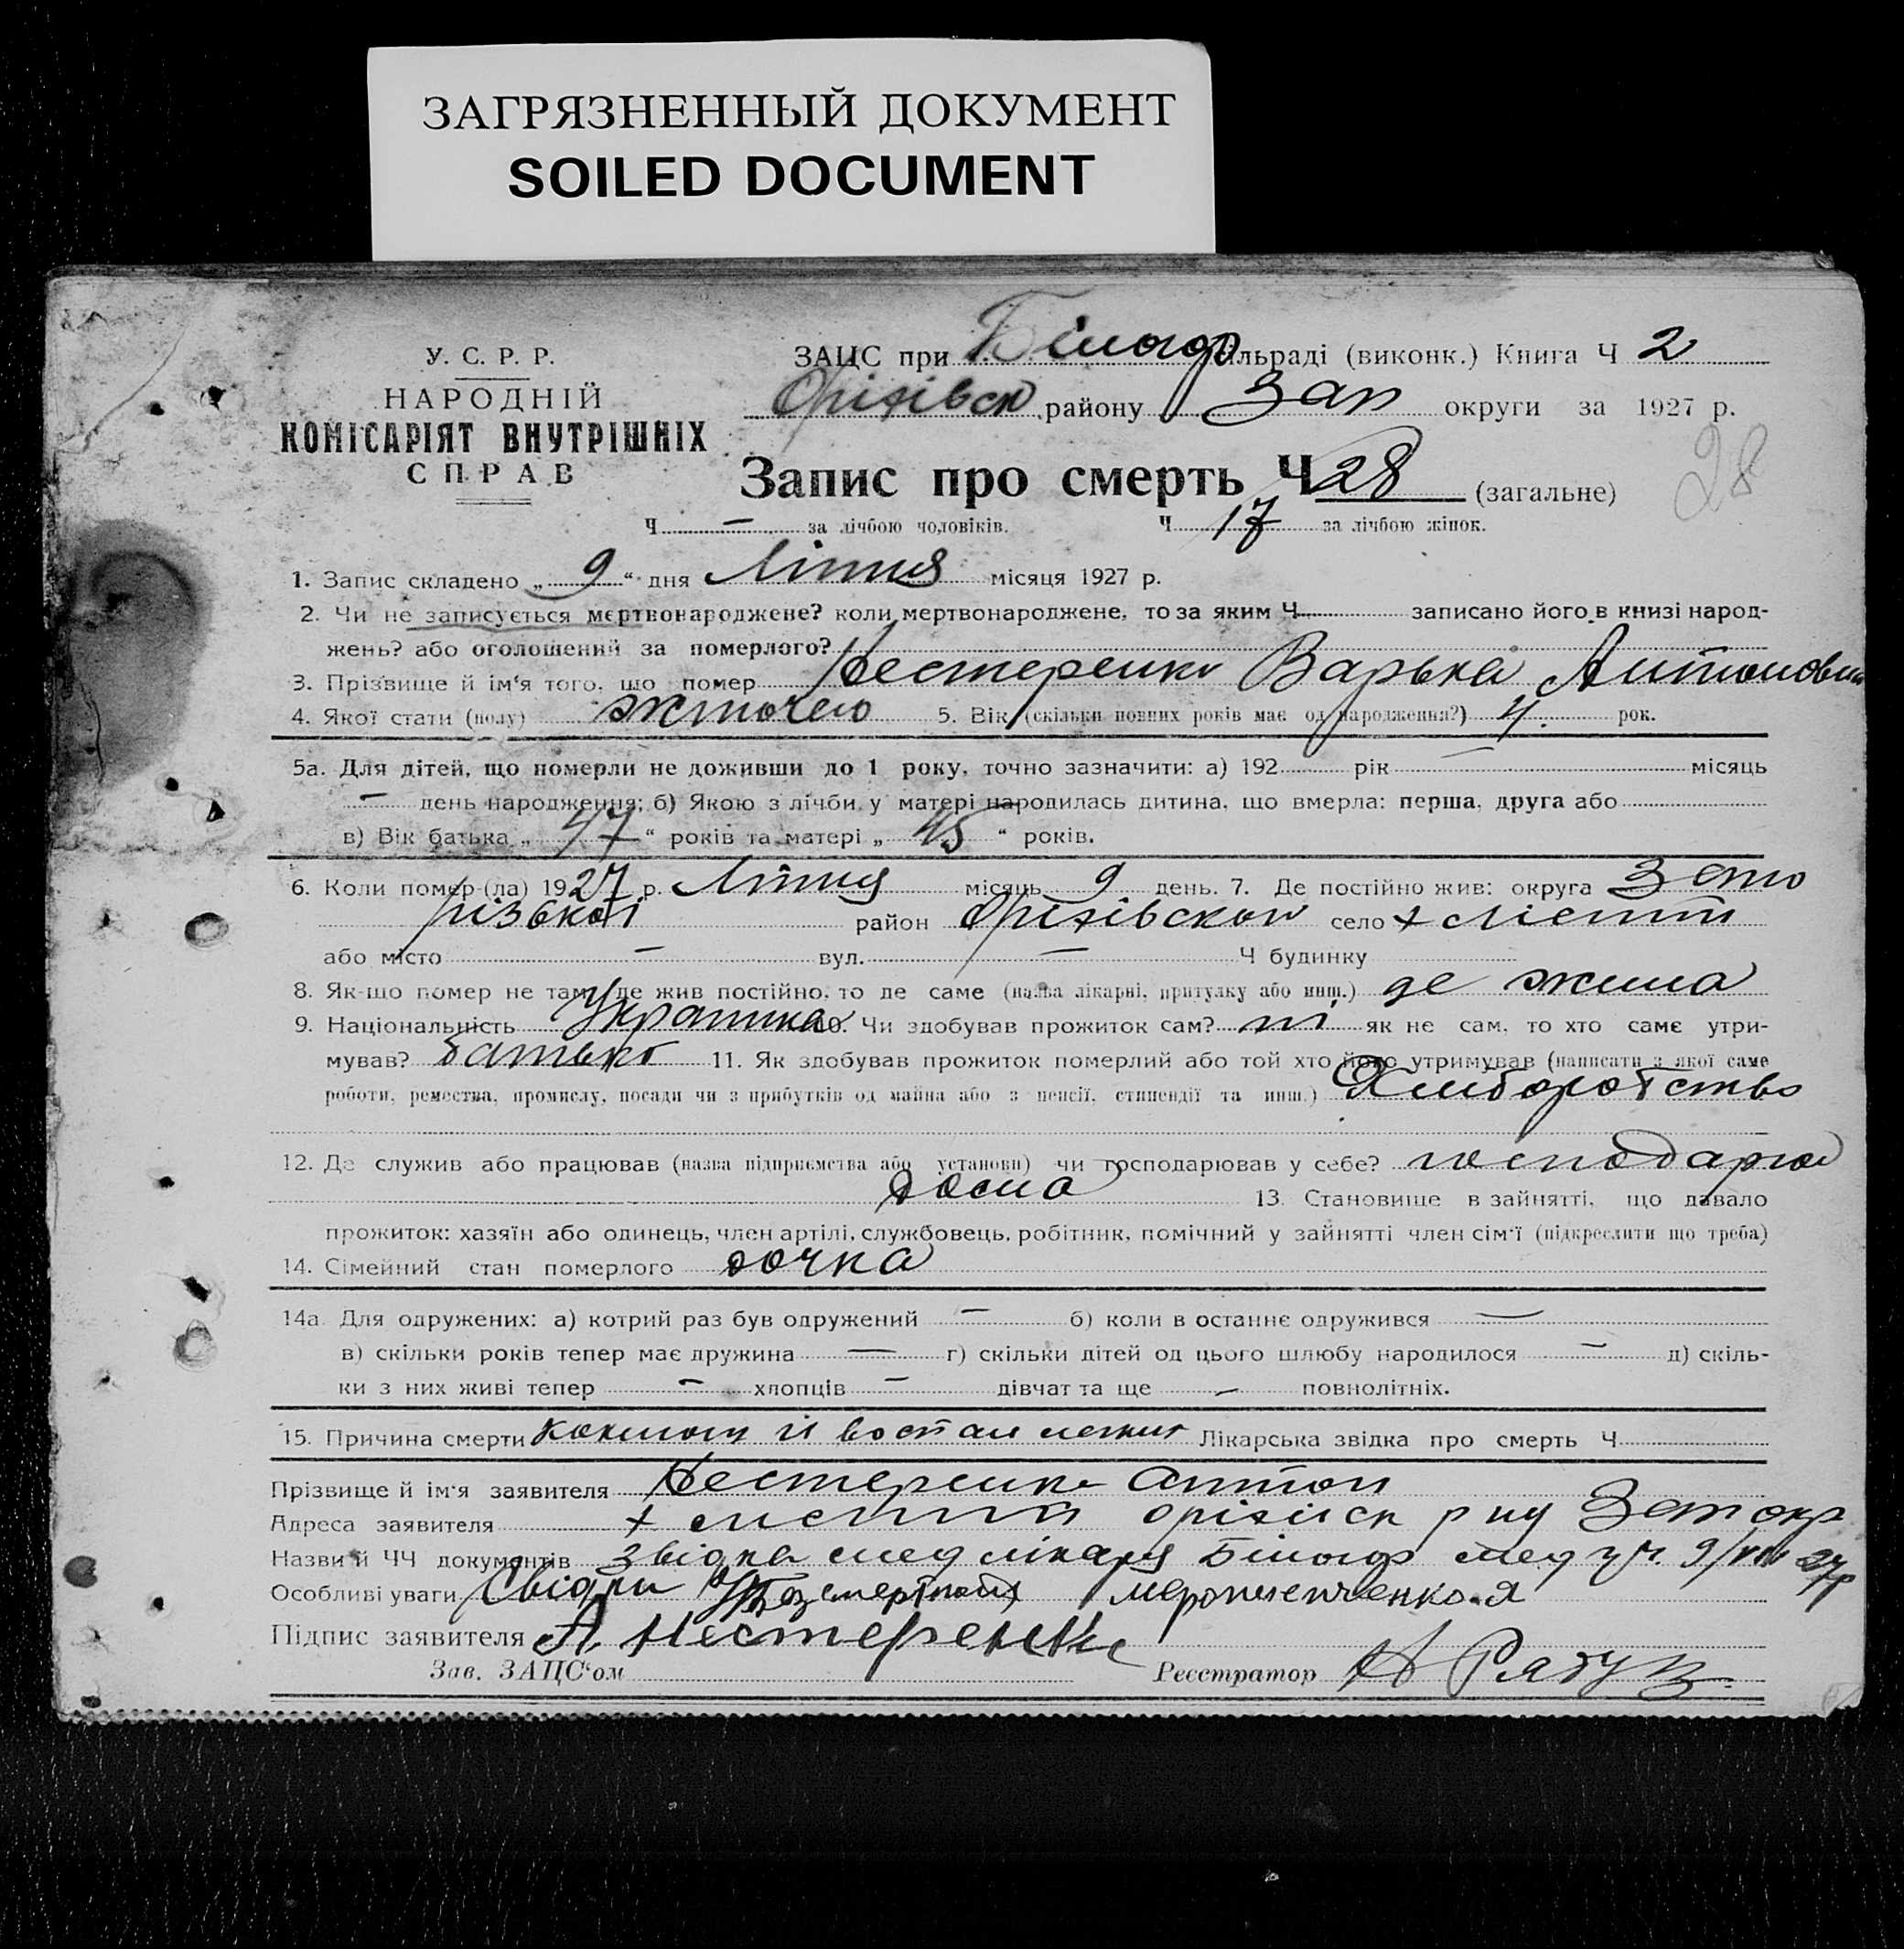 ЗАГРЯЗНЕННЫЙ ДОКУМЕНТ
SOILED DOCUMENT
У. С. Р. Р.
НАРОДНІЙ
КОМІСАРІЯТ ВНУТРІШНІХ
СПРАВ
ЗАЦС при Білогор сільраді (виконк.) Книга Ч 2
Оріхівск району Зап округи за 1927 р.
28
Запис про смерть Ч 28 (загальне)
Ч — за лічбою чоловіків. Ч 17 за лічбою жінок.
1. Запис складено „ 9 “ дня Липня місяця 1927 р.
2. Чи не записується мертвонароджене? коли мертвонароджене, то за яким Ч записано його в книзі народ-
жень? або оголошений за померлого?
3. Прізвище й ім'я того, що помер Нестеренко Варька Антоновн
4. Якої статі (полу) жіночего 5. Вік (скільки повних років має од народження?) 4. рок.
5а. Для дітей, що померли не доживши до 1 року, точно зазначити: а) 192 рік — місяць
— день народження; б) Якою з лічби у матері народилась дитина, що вмерла: перша, друга або
в) Вік батька „ 47 “ років та матері „ 45 “ років.
6. Коли помер (ла) 1927 р. Липня місяць 9 день. 7. Де постійно жив: округа Запо
різької район Оріхівской село
або місто — вул. — Ч будинку
8. Як-що помер не там, де жив постійно, то де саме (назва лікарні, притулку або инш.) де жила
9. Національність Українка 10. Чи здобував прожиток сам? ні як не сам, то хто саме утри-
мував? батько 11. Як здобував прожиток померлий або той хто його утримував (написати з якої саме
роботи, ремества, промислу, посади чи з прибутків од майна або з пенсії, стипендії та инш.) Хліборобство
12. Де служив або працював (назва підприємства або установи) чи господарював у себе? господарюв
дома 13. Становище в зайнятті, що давало
прожиток: хазяїн або одинець, член артілі, службовець, робітник, помічний у зайнятті член сім'ї (підкреслити що треба)
14. Сімейний стан померлого дочка
14а. Для одружених: а) котрий раз був одружений — б) коли в останнє одружився —
в) скільки років тепер має дружина — г) скільки дітей од цього шлюбу народилося — д) скіль-
ки з них живі тепер — хлопців — дівчат та ще — повнолітніх.
15. Причина смерти коклюш й воспал легких Лікарська звідка про смерть Ч
Прізвище й ім'я заявителя Нестеренко Антон
Адреса заявителя Оріхівск р ну Зап окр
Назви й ЧЧ документів Звідка мед лікаря Білогор мед уч. 9/VII 27р
Особливі уваги Свідки
Підпис заявителя А Нестеренко
Зав. ЗАЦС'ом Реєстратор